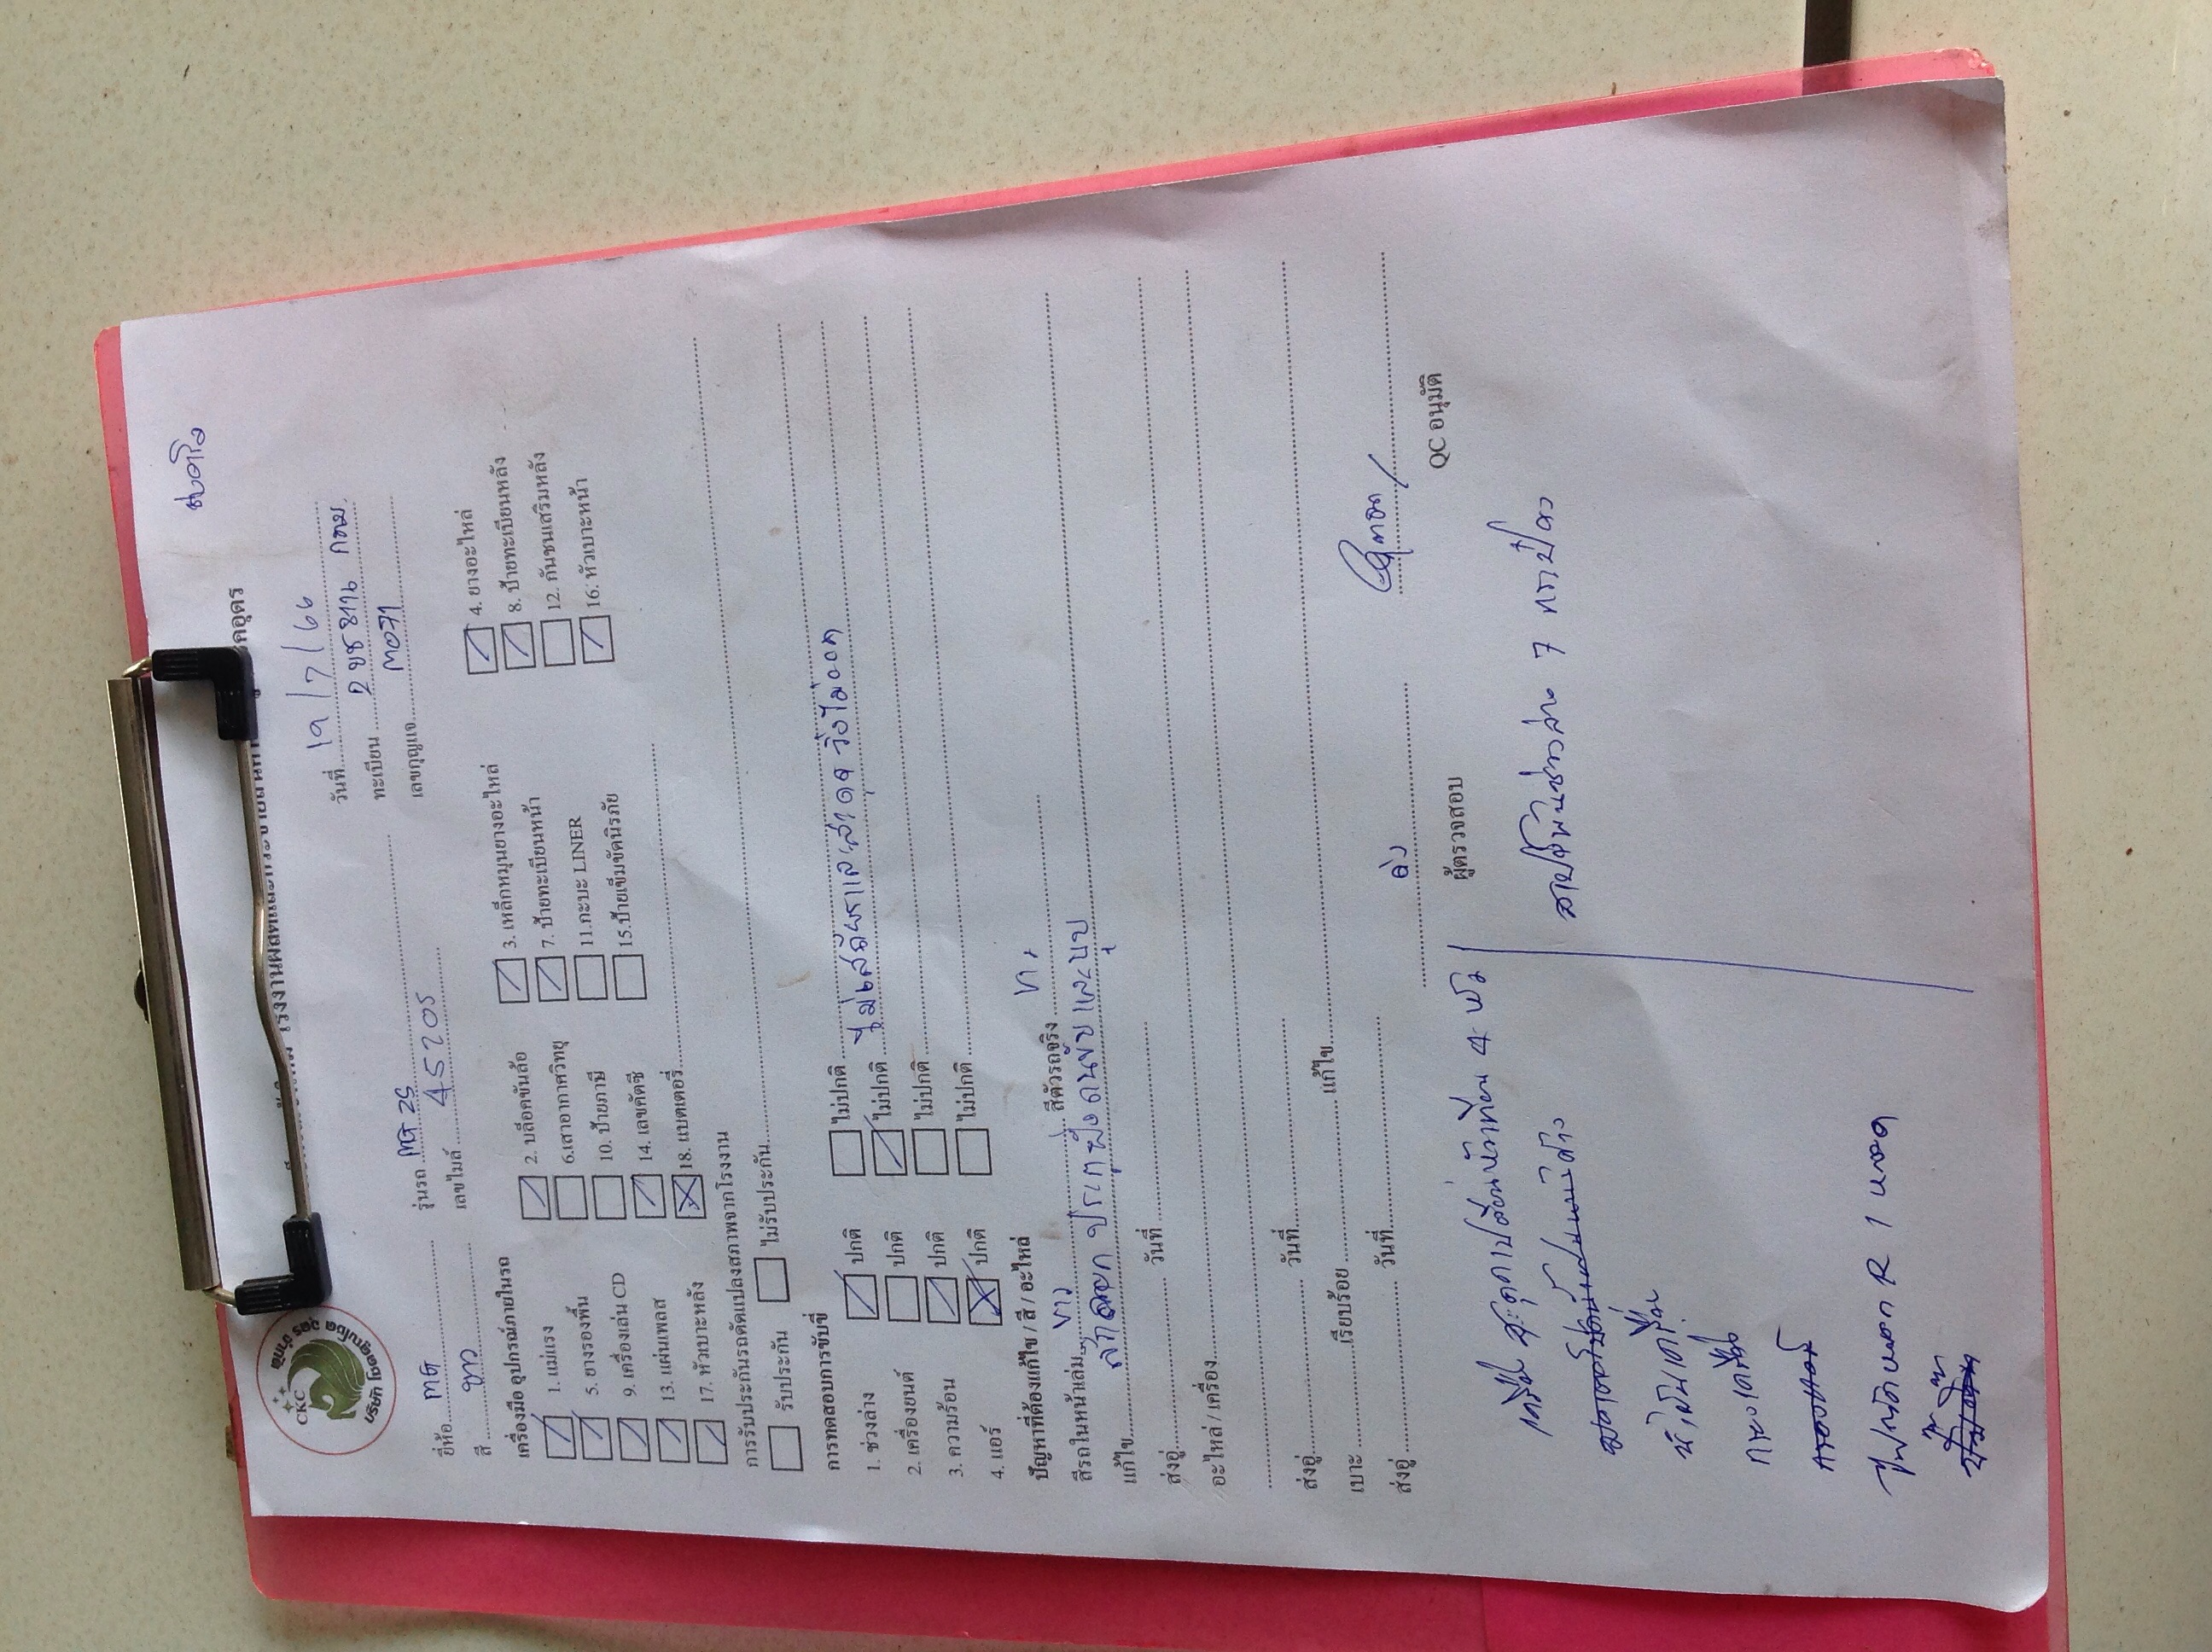 สมดใจ
บริษัท โชคคูณโชค อุดร จำกัด
CKC
วันที่ 19/7/66
ยี่ห้อ MG รุ่นรถ MG ZS ทะเบียน 2 ขช 8776 กทม.
สี ขาว เลขไมล์ 45205 เลขกุญแจ M071
เครื่องมือ อุปกรณ์ภายในรถ
1. แม่แรง 2. บล็อคขันล้อ 3. เหล็กหมุนยางอะไหล่ 4. ยางอะไหล่
5. ยางรองพื้น 6.เสาอากาศวิทยุ 7. ป้ายทะเบียนหน้า 8. ป้ายทะเบียนหลัง
9. เครื่องเล่น CD 10. ป้ายภาษี 11.กะบะ LINER 12. กันชนเสริมหลัง
13. แผ่นเพลส 14. เลขคัดซี 15.ป้ายเข็มขัดนิรภัย 16. หัวเบาะหน้า
17. หัวเบาะหลัง 18. แบตเตอรี่
การรับประกันรถดัดแปลงสภาพจากโรงงาน
รับประกัน ไม่รับประกัน
การทดสอบการขับขี่
1. ช่วงล่าง ปกติ ไม่ปกติ
2. เครื่องยนต์ ปกติ ไม่ปกติ ไม่เสถียรและสะดุด วิ่งไม่ออก
3. ความร้อน ปกติ ไม่ปกติ
4. แอร์ ปกติ ไม่ปกติ
ปัญหาที่ต้องแก้ไข / สี / อะไหล่
สีรถในหน้าเล่ม ขาว สีตัวรถจริง ขาว
แก้ไข สีถลอก ประตูฝั่งคนขับและบุบ
ส่งอู่ วันที่
อะไหล่ / เครื่อง
ส่งอู่ วันที่
เบาะ เรียบร้อย แก้ไข
ส่งอู่ วันที่
ผู้ตรวจสอบ QC อนุมัติ
เครื่อง สะดุดเปลี่ยนหัวเทียน 4 หัว
น้ำมันเครื่อง
กรองเครื่อง
R 1 หลอด